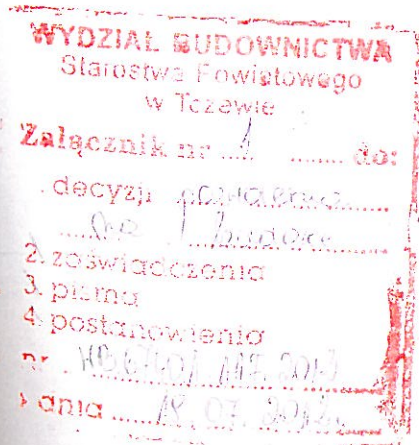 WYDZIAŁ BUDOWNICTWA
Starostwa Powiatowego
w Tczewie
Załącznik nr 1 do:
decyzji pozwolenia
na budowę
2. zaświadczenia
3. pisma
4. postanowienia
nr
dnia 18.07.2013r.